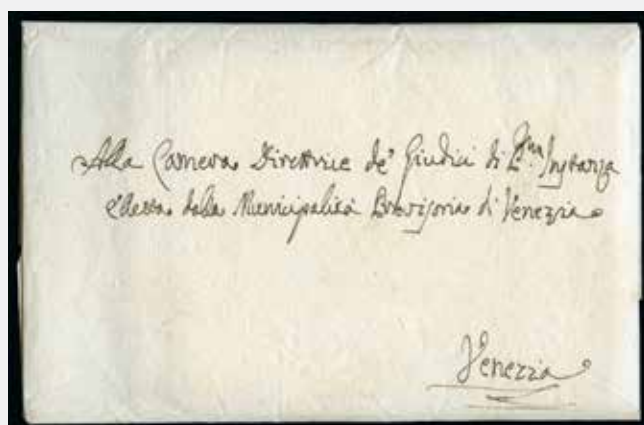 Alla Camera Direttrice de' Giudici di P.ma Instanza
eletta dalla Municipalità Provisoria di Venezia
Venezia